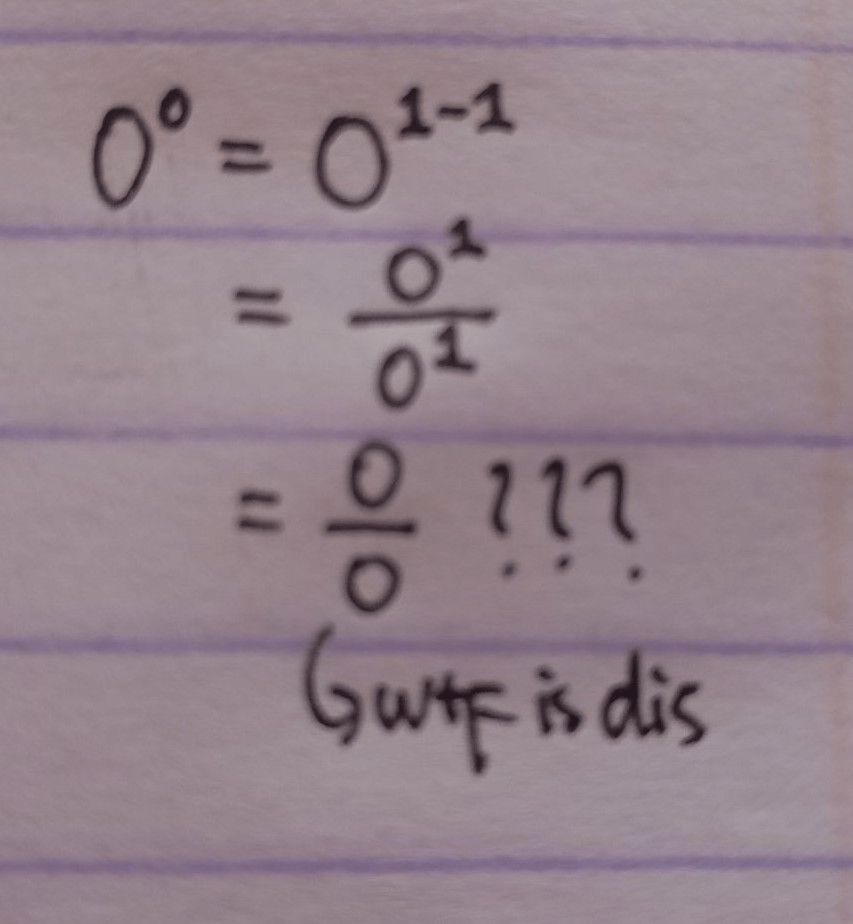 0⁰ = 0¹⁻¹
= 0¹/0¹
= 0/0 ???
↳ wtf is dis